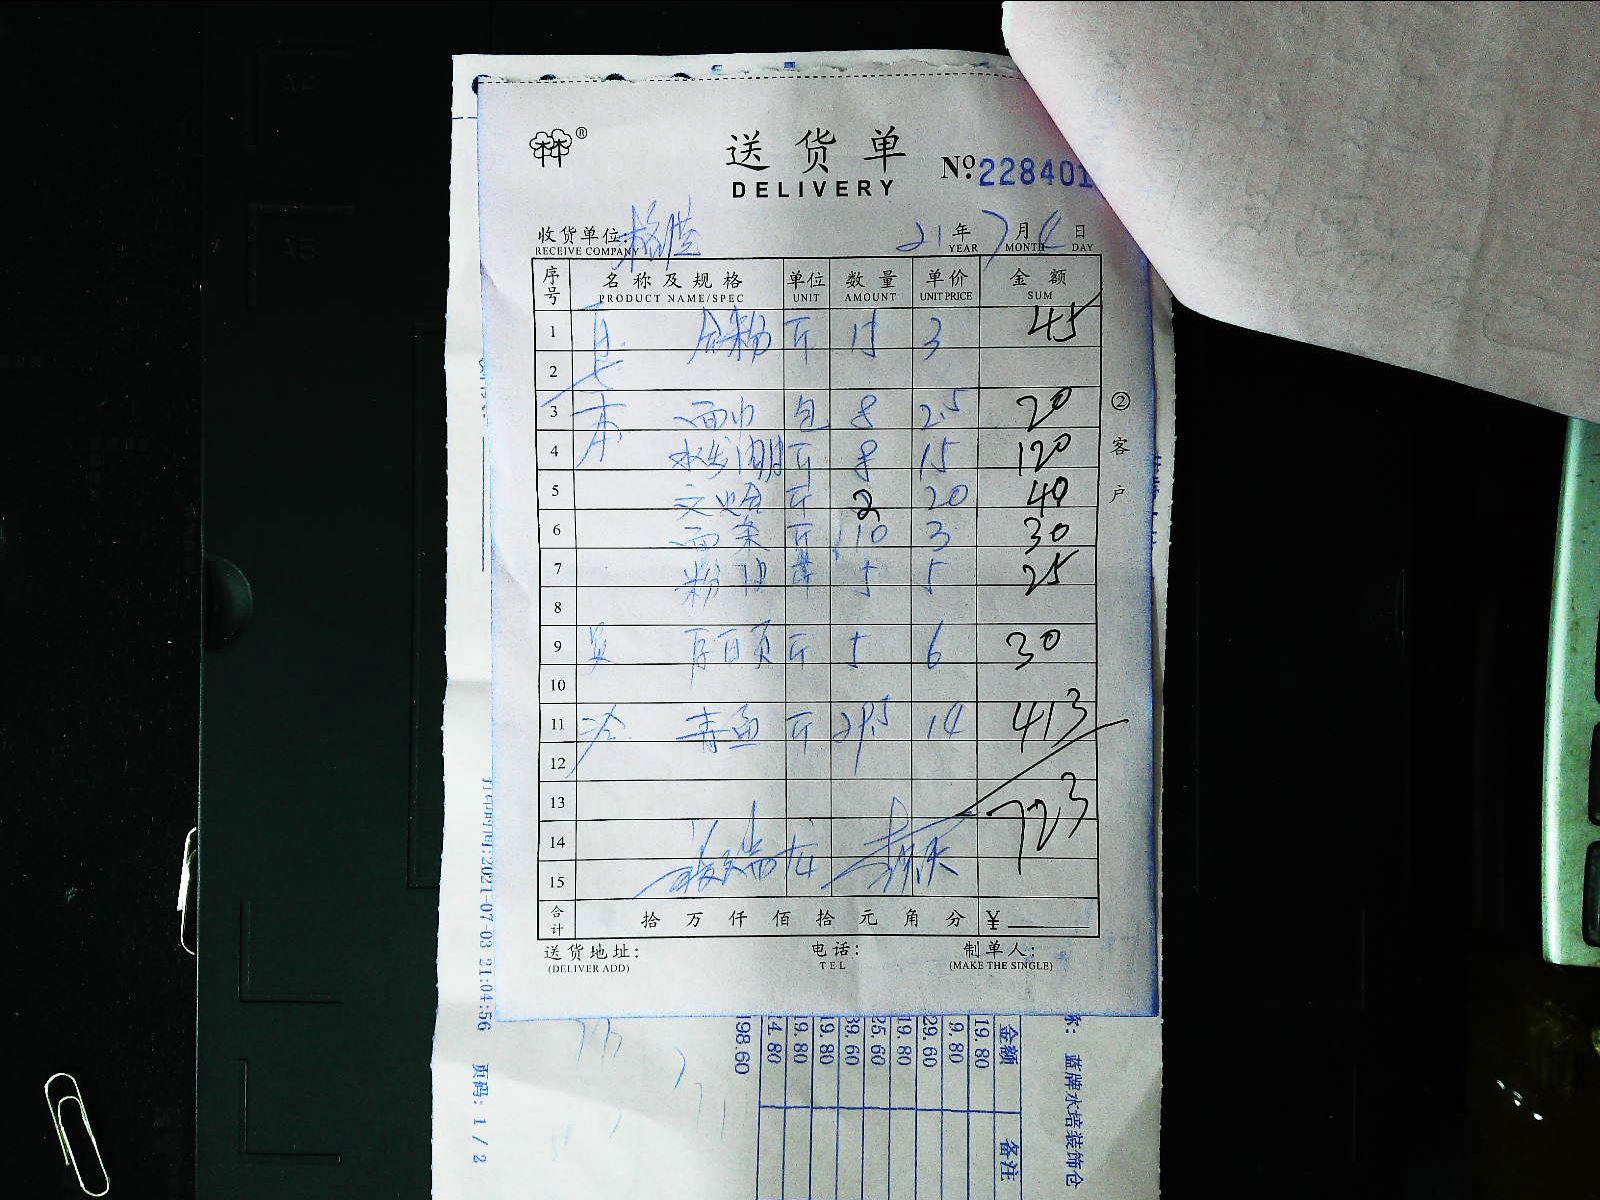 ®
送货单
DELIVERY
Nº.228401
收货单位:
RECEIVE COMPANY
21年7月4日
YEAR MONTH DAY
序号 名称及规格 单位 数量 单价 金额
PRODUCT NAME/SPEC UNIT AMOUNT UNIT PRICE SUM
1 粉 斤 15 3 45
2
3 面巾 包 8 2.5 20
4 水发 斤 8 15 120
5 文蛤 斤 2 20 40
6 面条 斤 10 3 30
7 粉 5 5 25
8
9 百页 斤 5 6 30
10
11 冷 青鱼 斤 29.5 14 413
12
13 723
14
15
合计 拾万仟佰拾元角分 ¥
②客户
送货地址: 电话: 制单人:
(DELIVER ADD) TEL (MAKE THE SINGLE)
打印时间:2021-07-03 21:04:56 页码: 1 / 2
蓝牌水培装饰仓
金额 备注
19.80
9.80
29.60
19.80
25.60
39.60
19.80
19.80
14.80
198.60